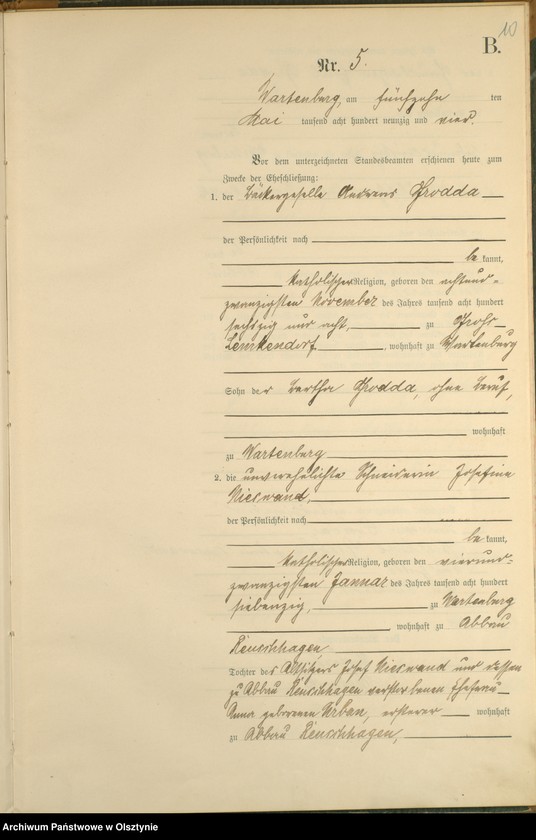 10
B.
Nr. 5.
Wartenburg, am fünfzehn ten
Mai tausend acht hundert neunzig und vier.
Vor dem unterzeichneten Standesbeamten erschienen heute zum
Zwecke der Eheschließung:
1. der Bäckergeselle Andreas Grodda
der Persönlichkeit nach
be kannt,
katholischer Religion, geboren den achtund-
zwanzigsten November des Jahres tausend acht hundert
sechszig und acht, zu Groß
Lemkendorf, wohnhaft zu Wartenburg
Sohn der Bertha Grodda, ohne Beruf,
wohnhaft
zu Wartenburg
2. die unverehelichte Schneiderin Josefine
Nieswand,
der Persönlichkeit nach
be kannt,
katholischer Religion, geboren den vierund-
zwanzigsten Januar des Jahres tausend acht hundert
siebenzig, zu Wartenburg
wohnhaft zu Abbau
Reuschhagen,
Tochter des Altsitzers Josef Nieswand und dessen
zu Abbau Reuschhagen verstorbenen Ehefrau
Anna geborenen Urban, ersterer wohnhaft
zu Abbau Reuschhagen,
Archiwum Państwowe w Olsztynie